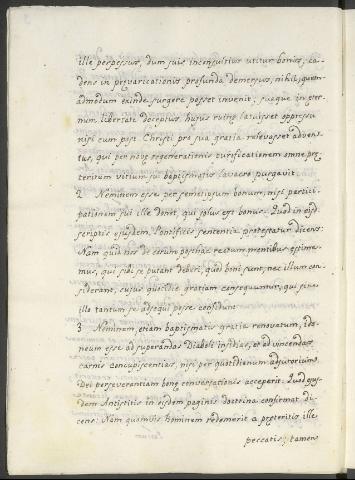 ille perpessus, dum suis inconsultius utitur bonis, ca-
dens in prævaricationis profunda demersus, nihil, quem-
admodum exinde surgere posset invenit; suaque in æter-
num libertate deceptus, hujus ruinæ latuisset oppressu
nisi eum post Christi pro sua gratia relevasset adven-
tus, qui per novæ regenerationis purificationem omne præ-
teritum vitium sui baptismatis lavacro purgavit.
2 Neminem esse per semetipsum bonum, nisi partici-
pationem sui ille donet, qui solus est bonus. Quod in eisd
scriptis ejusdem Pontificis sententia protestatur dicens:
Nam quid nos de eorum posthac rectum mentibus estime-
mus, qui sibi se putant debere, quod boni sunt; nec illum con-
siderant, cujus quotidie gratiam consequuntur, qui sine
illo tantum se adsequi posse confidunt.
3 Neminem, etiam baptismatis gratia renovatum, ido-
neum esse ad superandas Diaboli insidias, et ad vincendas
carnis concupiscentias, nisi per quotidianum adjutorium
Dei perseverantiam bonæ conversationis acceperit. Quod ejus-
dem Antistitis in eisdem paginis doctrina confirmat di-
cens: Nam quamvis hominem redemerit a præteritis ille
peccatis; tamen